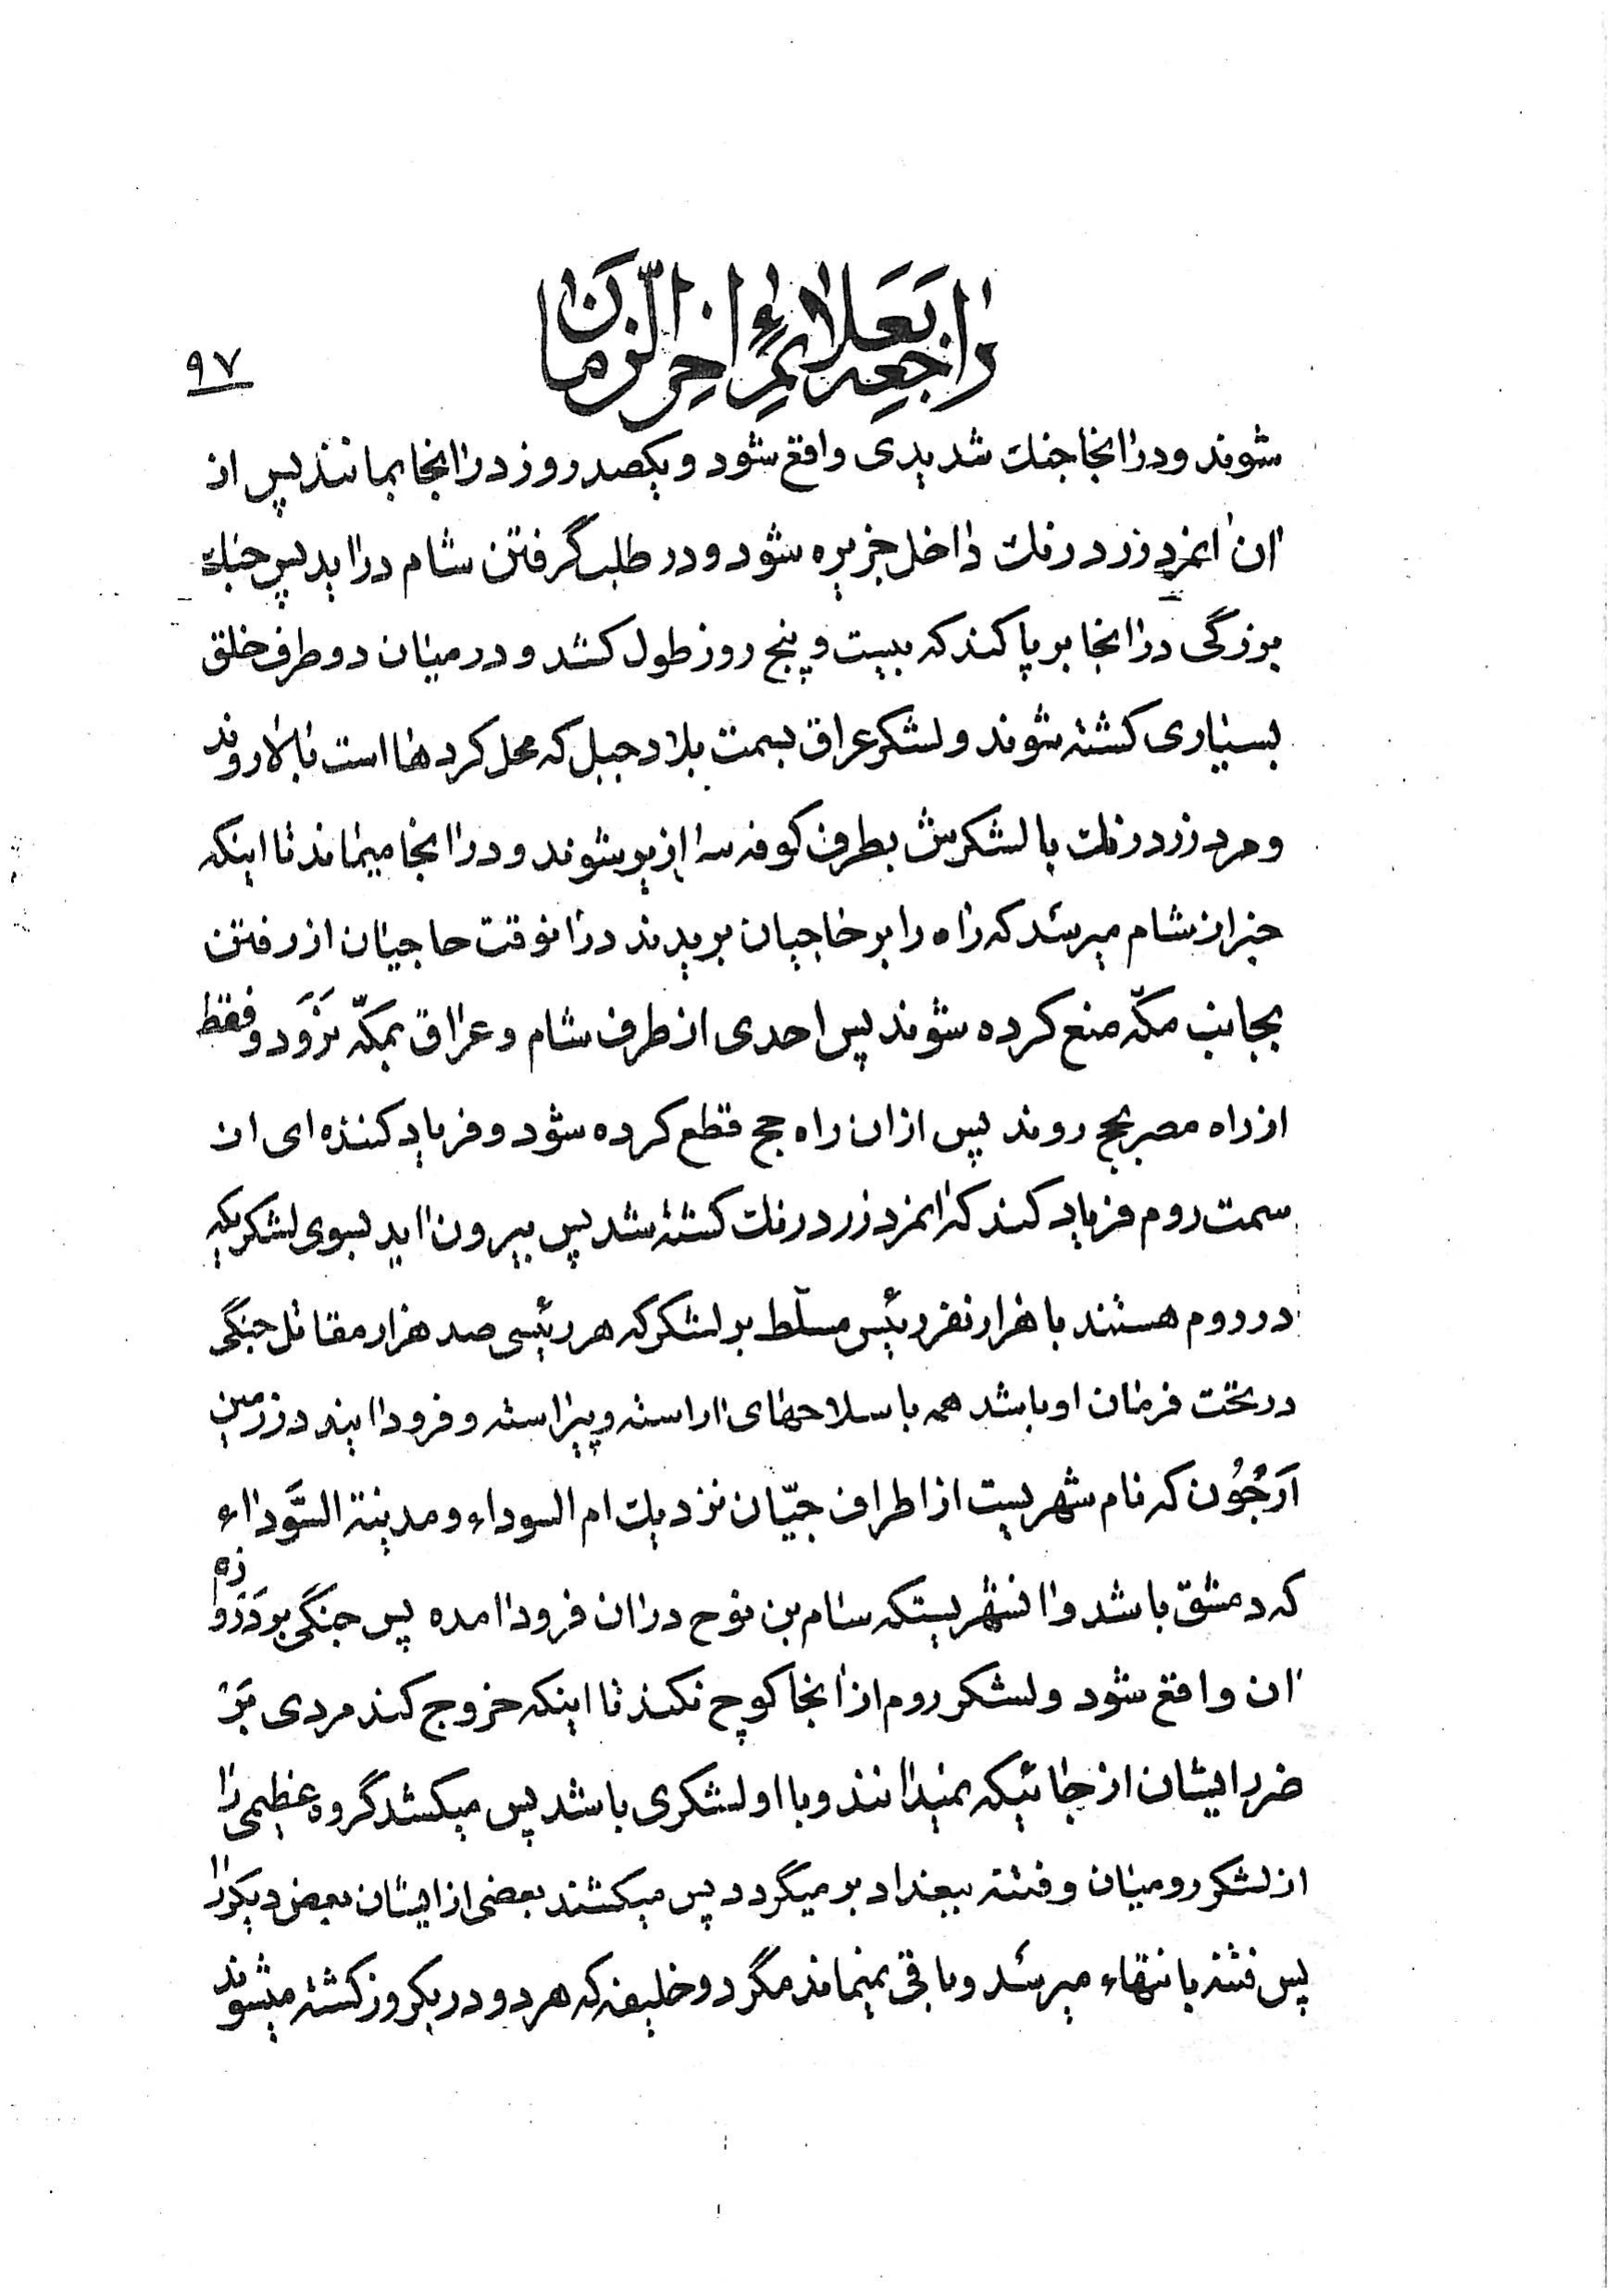 راجعه بعلائم اخر الزمان
۹۷
شوند و در انجا جنك شدیدی واقع شود و یکصد روز در انجا بمانند پس از
ان انمرد زرد رنك داخل جزیره شود و در طلب گرفتن شام در اید پس جنك
بزرگی در انجا بر پا کند که بیست و پنج روز طول کشد و در میان دو طرف خلق
بسیاری کشته شوند و لشکر عراق بسمت بلاد جبل که محل کردها است بالا روند
و مرد زرد رنك با لشکرش بطرف کوفه سرازیر شوند و در انجا میماند تا اینکه
خبر از شام میرسد که راه را بر حاجیان بریدند در انوقت حاجیان از رفتن
بجانب مکّه منع کرده شوند پس احدی از طرف شام و عراق بمکّه نَرَوَد و فقط
از راه مصر بحج روند پس از ان راه حج قطع کرده شود و فریاد کننده ای از
سمت روم فریاد کند که انمرد زرد رنك کشته شد پس بیرون اید بسوی لشکریکه
در روم هستند با هزار نفر رئیس مسلّط بر لشکر که هر رئیسی صد هزار مقاتل جنگی
در تحت فرمان او باشد همه با سلاحهای اراسته و پیراسته و فرود ایند در زمین
اَرَجُون که نام شهریست از اطراف جیّان نزدیك ام السوداء و مدینة السَّوداء
که دمشق باشد و انشهریستکه سام بن نوح در ان فرود امده پس جنگی بر دَرْوازه
ان واقع شود و لشکر روم از انجا کوچ نکند تا اینکه خروج کند مردی بَر
ضرر ایشان از جائیکه نمیدانند و با او لشکری باشد پس میکشد گروه عظیمی را
از لشکر رومیان و فتنه ببغداد بر میگردد پس میکشند بعضی از ایشان بعض دیگر را
پس فتنه بانتهاء میرسد و باقی نمیماند مگر دو خلیفه که هر دو در یکروز کشته میشوند